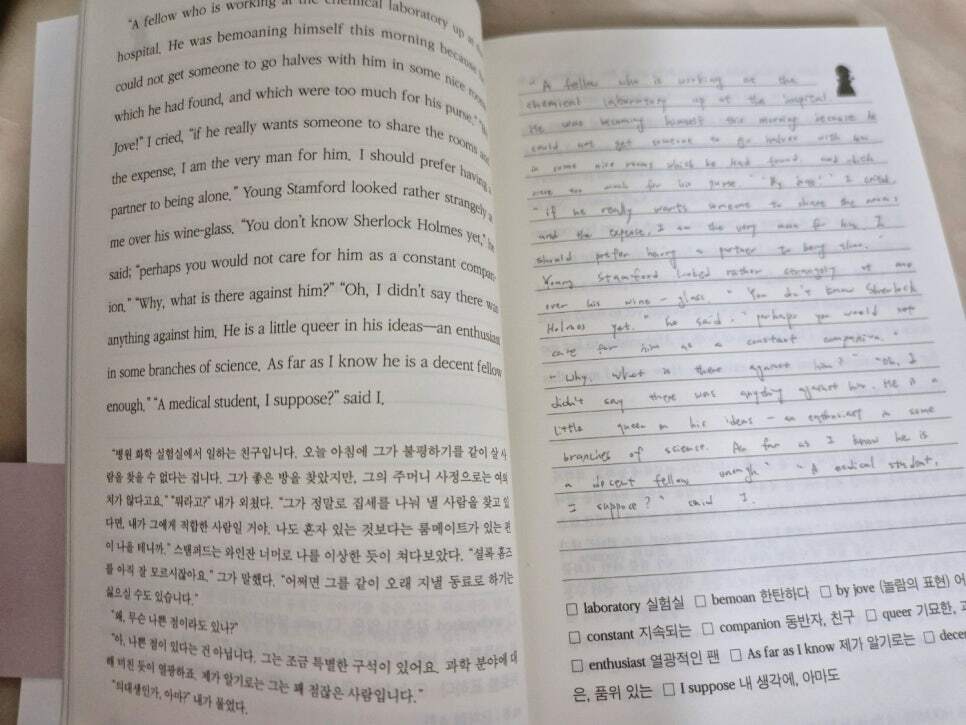 “A fellow who is working at the chemical laboratory up at the
hospital. He was bemoaning himself this morning because he
could not get someone to go halves with him in some nice rooms
which he had found, and which were too much for his purse.” “By
Jove!” I cried, “if he really wants someone to share the rooms and
the expense, I am the very man for him. I should prefer having a
partner to being alone.” Young Stamford looked rather strangely a
me over his wine-glass. “You don’t know Sherlock Holmes yet,” he
said; “perhaps you would not care for him as a constant compan-
ion.” “Why, what is there against him?” “Oh, I didn’t say there was
anything against him. He is a little queer in his ideas—an enthusiast
in some branches of science. As far as I know he is a decent fellow
enough.” “A medical student, I suppose?” said I.
“병원 화학 실험실에서 일하는 친구입니다. 오늘 아침에 그가 불평하기를 같이 살 사
람을 찾을 수 없다는 겁니다. 그가 좋은 방을 찾았지만, 그의 주머니 사정으로는 여의
치가 않다고요.” “뭐라고?” 내가 외쳤다. “그가 정말로 집세를 나눠 낼 사람을 찾고 있
다면, 내가 그에게 적합한 사람일 거야. 나도 혼자 있는 것보다는 룸메이트가 있는 편
이 나을 테니까.” 스탬퍼드는 와인잔 너머로 나를 이상한 듯이 쳐다보았다. “셜록 홈즈
를 아직 잘 모르시잖아요.” 그가 말했다. “어쩌면 그를 같이 오래 지낼 동료로 하기는
싫으실 수도 있습니다.”
“왜, 무슨 나쁜 점이라도 있나?”
“아, 나쁜 점이 있다는 건 아닙니다. 그는 조금 특별한 구석이 있어요. 과학 분야에 대
해 미친 듯이 열광하죠. 제가 알기로는 그는 꽤 점잖은 사람입니다.”
“의대생인가, 아마?” 내가 물었다.
“A fellow who is working at the
chemical laboratory up at the hospital.
He was himself this morning because he
could not get someone to go halves with him
in some nice rooms which he had found, and which
were too much for his purse.” “By Jove!” I cried,
“if he really wants someone to share the rooms
and the expense, I am the very man for him. I
should prefer having a partner to being alone.”
Young Stamford looked rather strangely at me
over his wine-glass. “You don't know Sherlock
Holmes yet.” he said. “perhaps you would not
care for him as a constant companion.”
“Why, what is there against him?” “Oh, I
didn't say there was anything against him. He is a
little in his ideas - an enthusiast in some
branches of science. As far as I know he is
a decent fellow enough” “A medical student,
I suppose?” said I.
□ laboratory 실험실 □ bemoan 한탄하다 □ by jove (놀람의 표현) 어
□ constant 지속되는 □ companion 동반자, 친구 □ queer 기묘한,
□ enthusiast 열광적인 팬 □ As far as I know 제가 알기로는 □ decen
은, 품위 있는 □ I suppose 내 생각에, 아마도